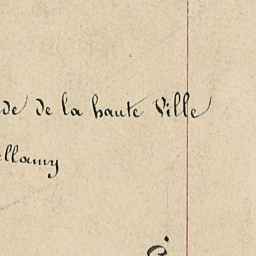 de de la haute Ville
ellamy